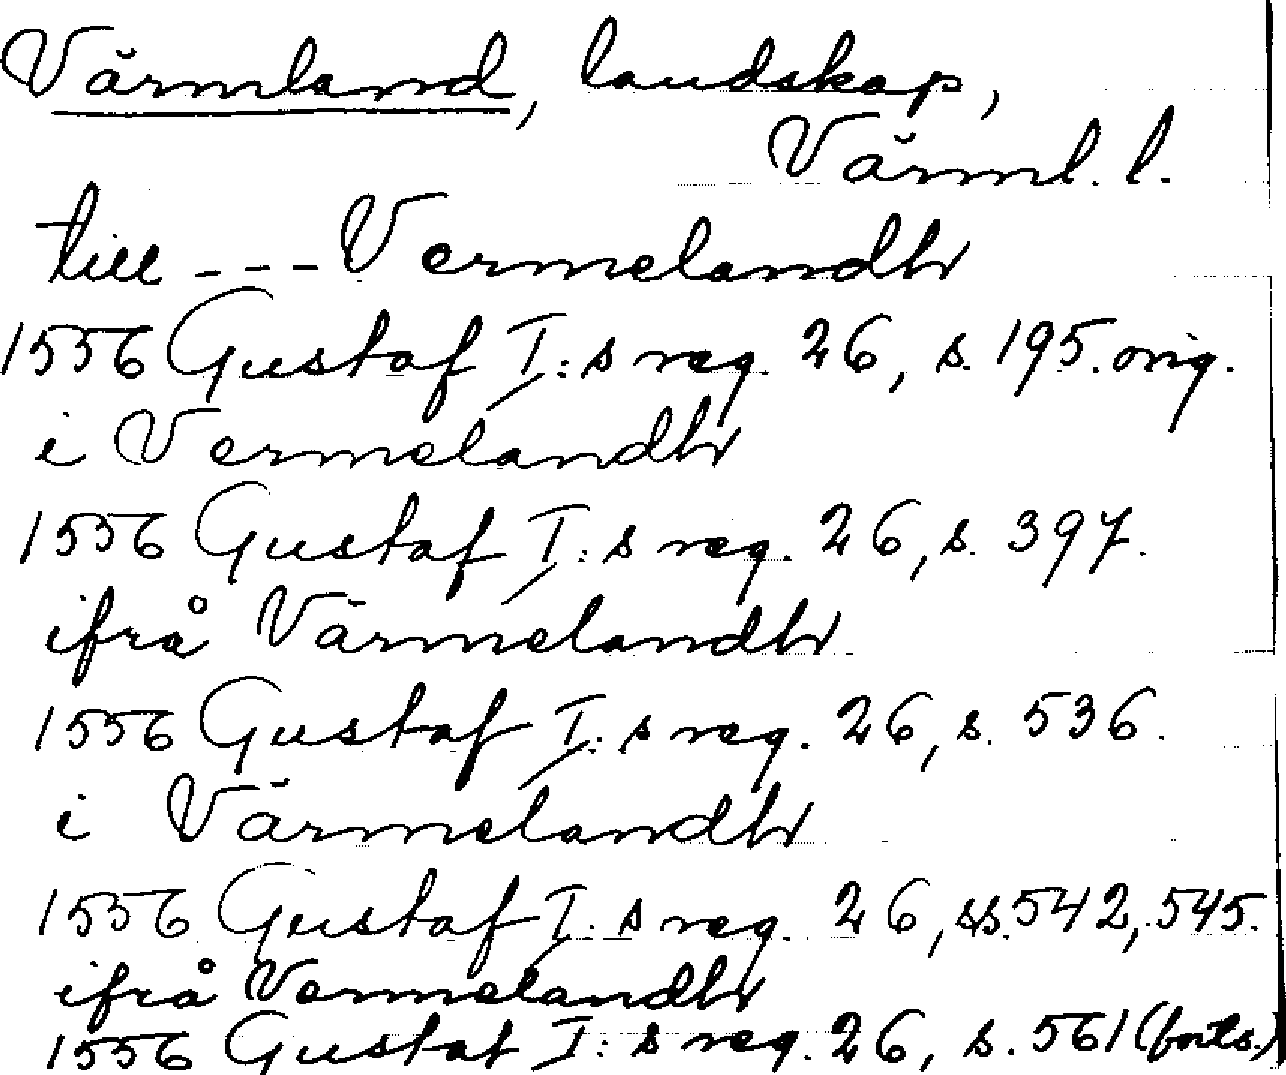 Värmland, landskap,
Värml. l.
till --- Vermelandh
1556 Gustaf I:s reg. 26, s. 195. orig.
i Vermelandh
1556 Gustaf I:s reg. 26, s. 397.
ifrå Värmelandh
1556 Gustaf I:s reg. 26, s. 536.
i Värmelandh
1556 Gustaf I:s reg. 26, ss. 542, 545.
ifrå Vermelandh
1556 Gustaf I:s reg. 26, s. 561 (forts.)